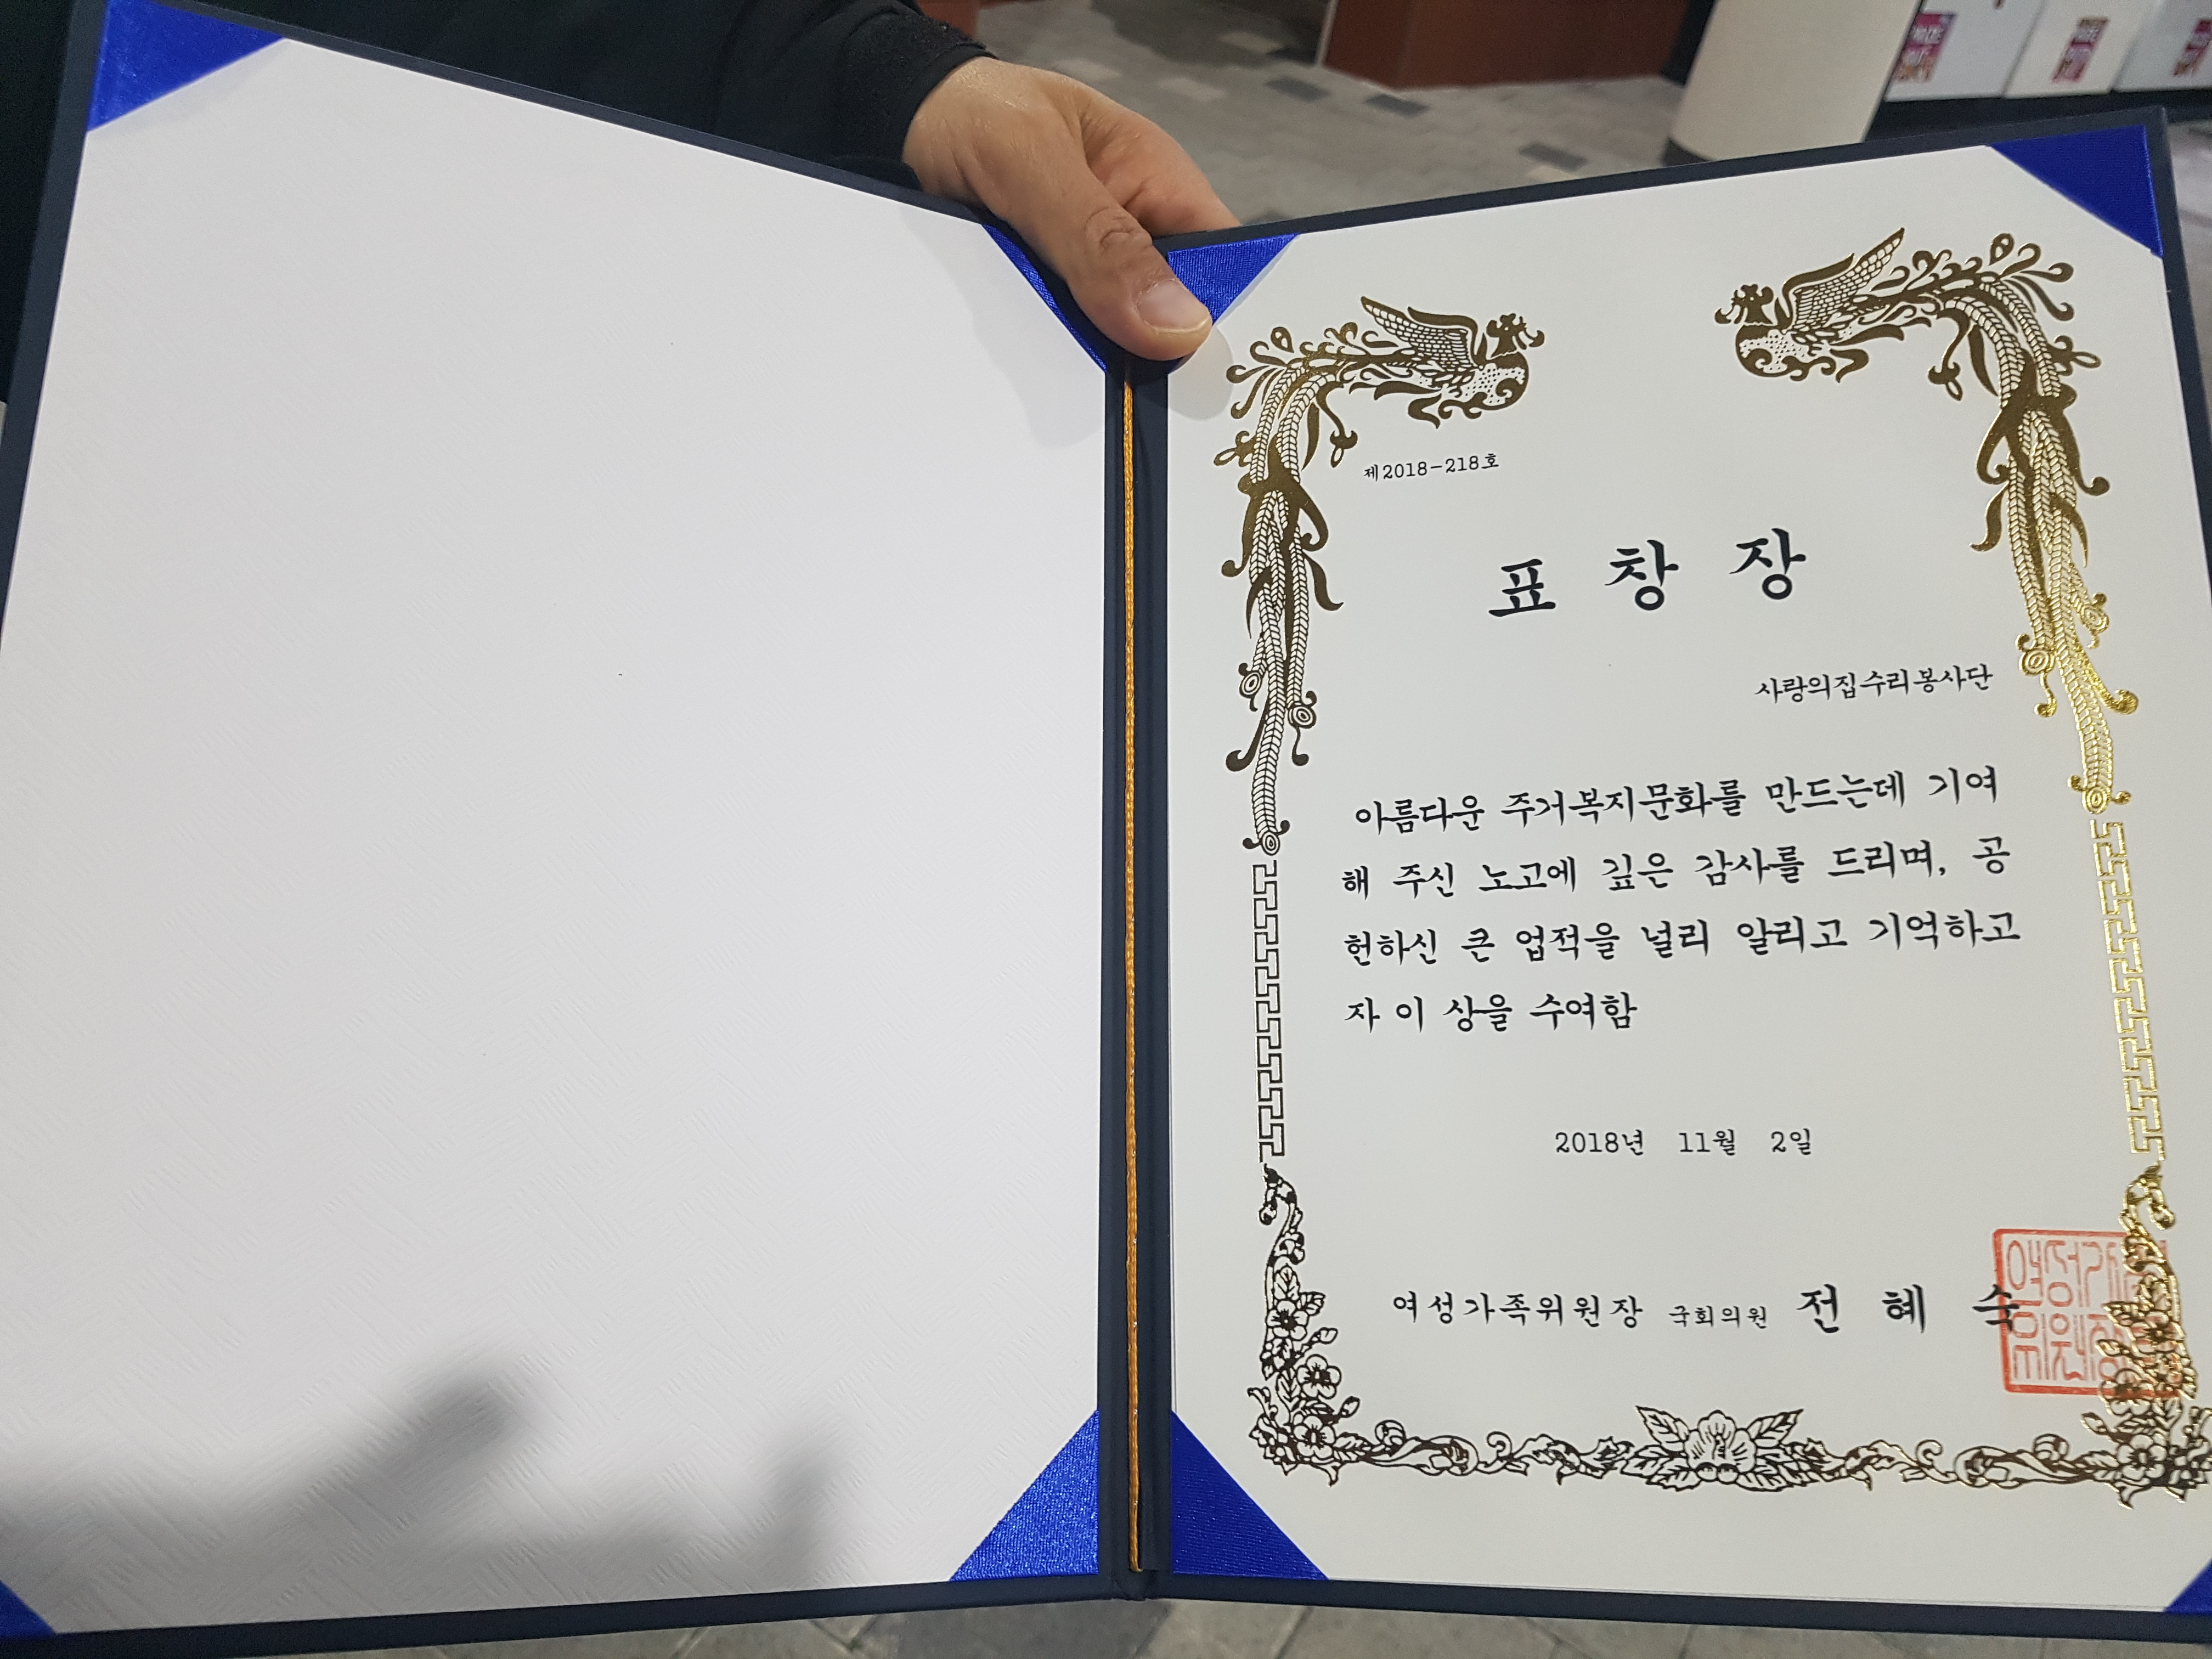 제2018-218호
표 창 장
사랑의집수리봉사단
아름다운 주거복지문화를 만드는데 기여
해 주신 노고에 깊은 감사를 드리며, 공
헌하신 큰 업적을 널리 알리고 기억하고
자 이 상을 수여함
2018년 11월 2일
여성가족위원장 국회의원 전 혜 숙